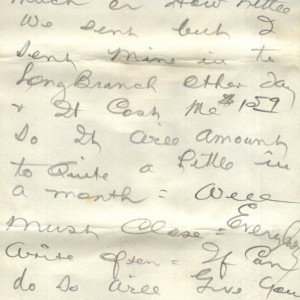 much or How little
We sent but I
Sent Mine in to
Long Branch other day
& It Cost Me $1.59
So It Will Amount
to Quite a little in
a month = Well
Must Close = Everybody
Write often = If Can
do So Will Give You